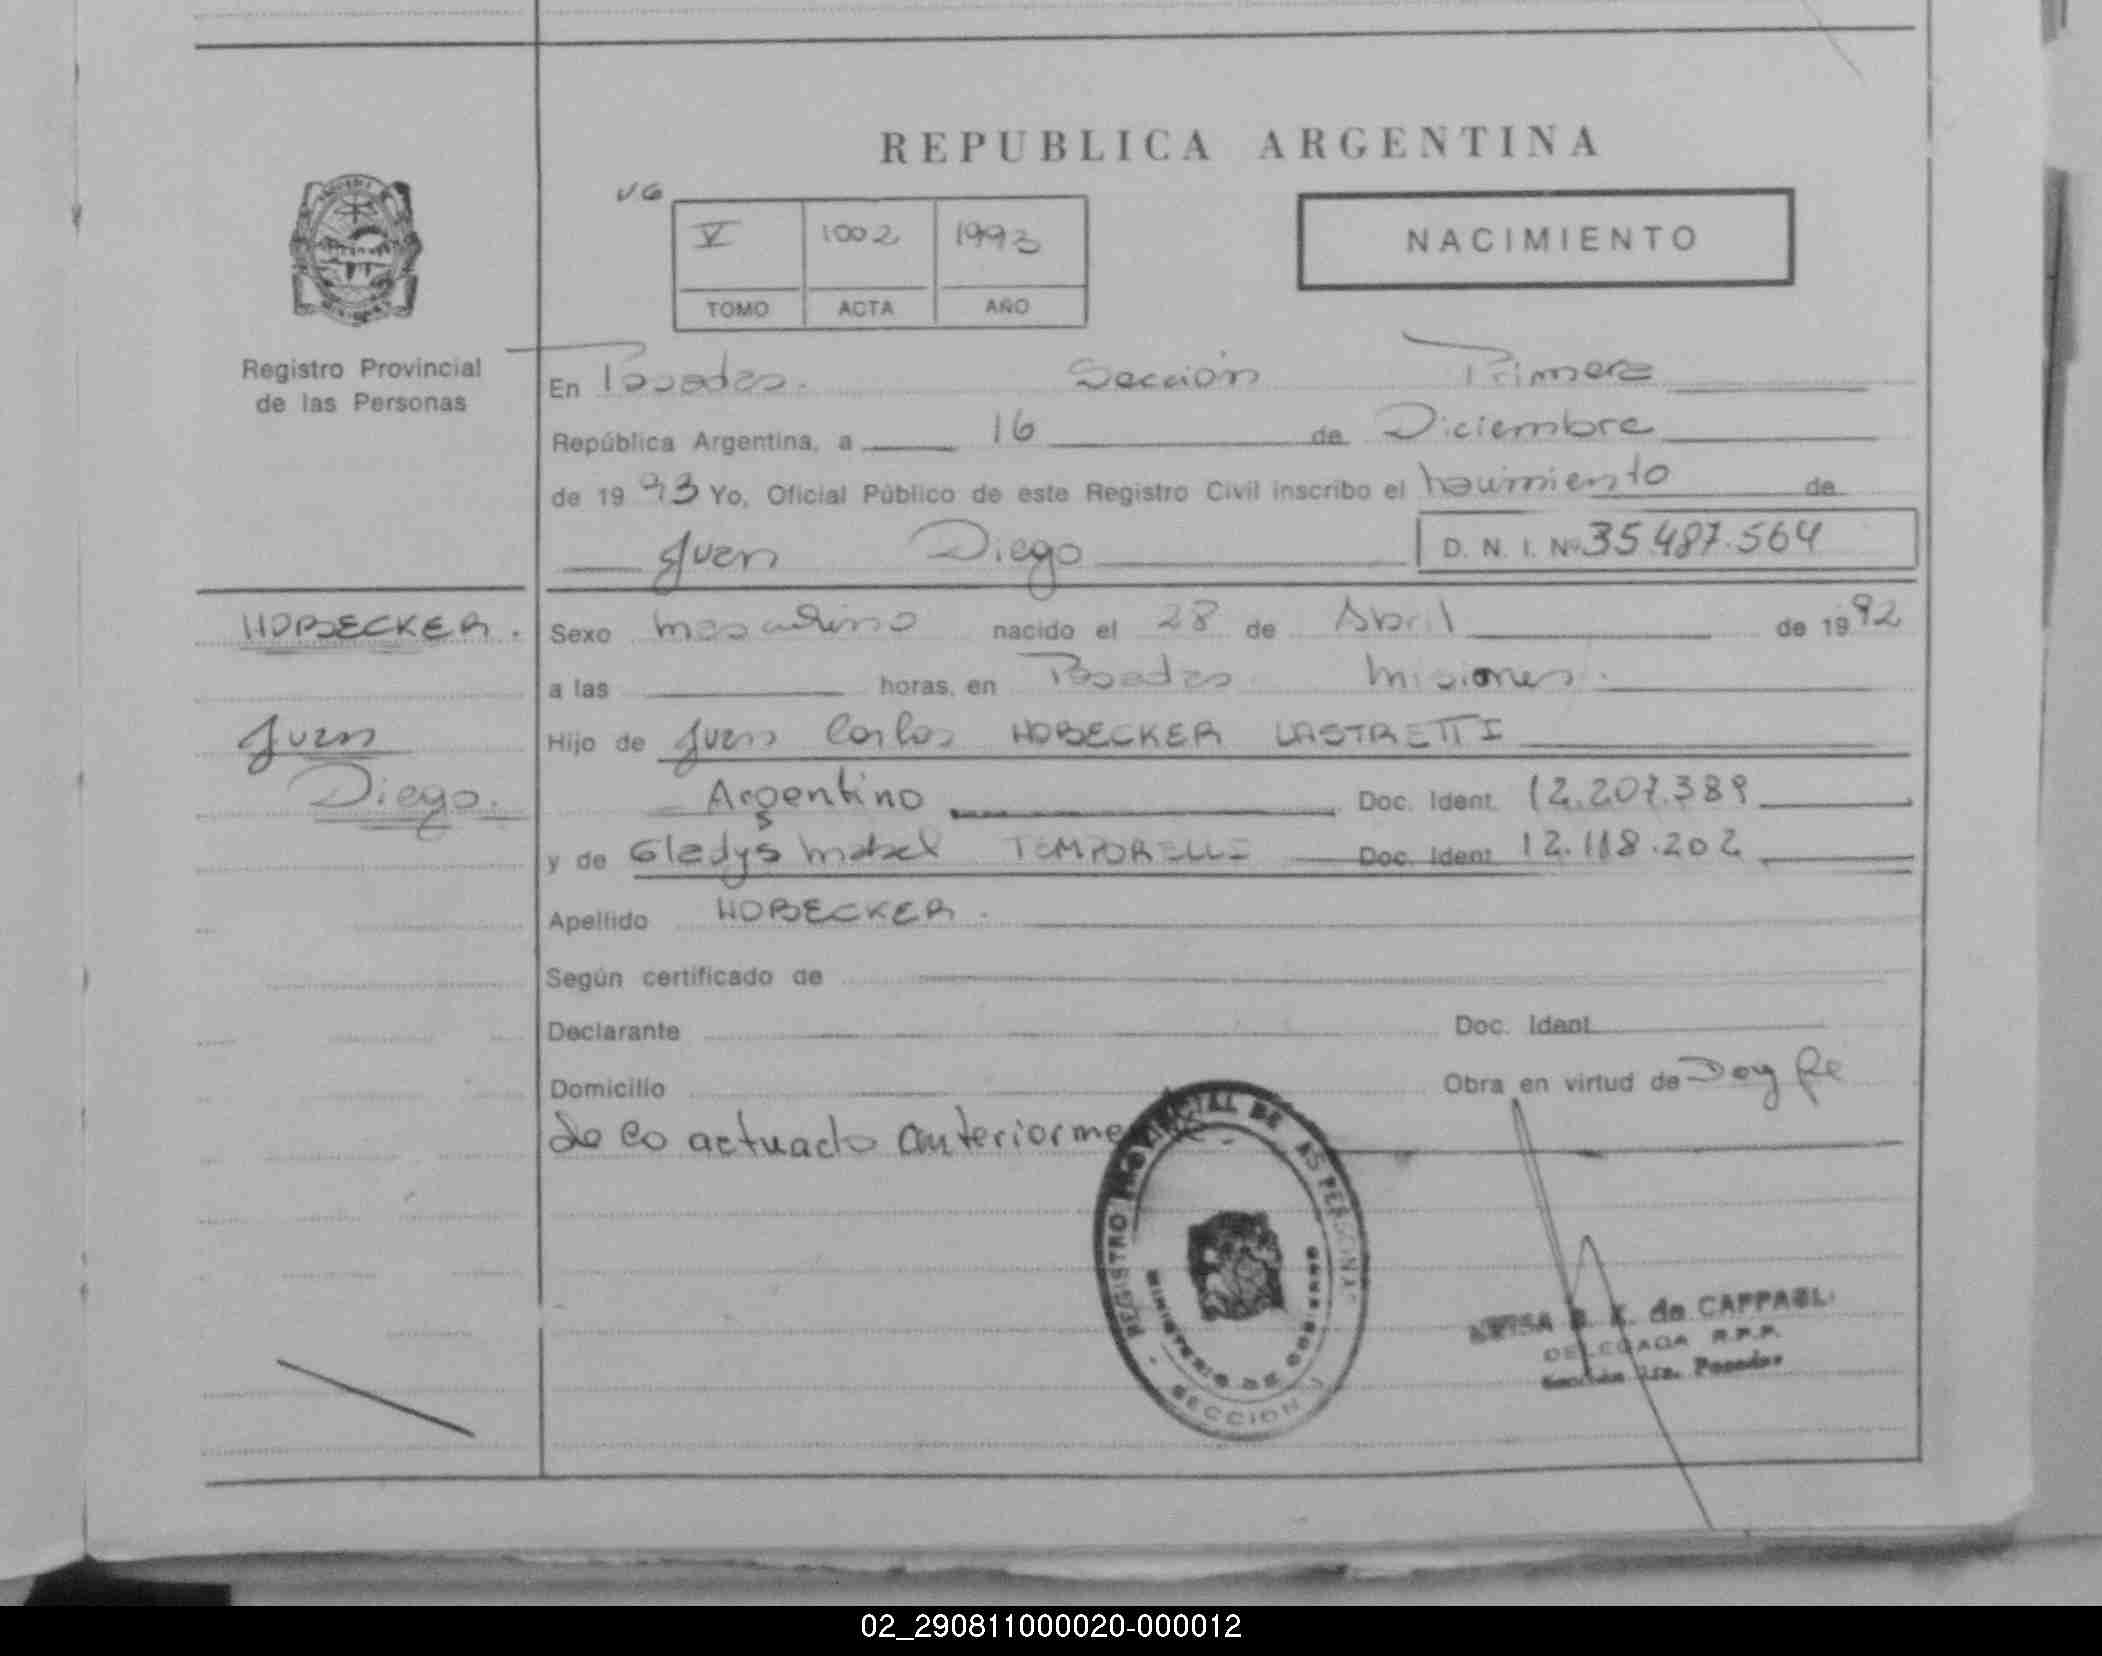 REPUBLICA ARGENTINA
VG
V 1002 1993
TOMO ACTA AÑO
NACIMIENTO
Registro Provincial
de las Personas
En Posadas. Sección Primera
República Argentina, a 16 de Diciembre
de 1993 Yo, Oficial Público de este Registro Civil inscribo el nacimiento de
Juan Diego D. N. I. Nº 35.487.564
HOBECKER.
Juan
Diego.
Sexo masculino nacido el 28 de Abril de 1992
a las horas, en Posadas Misiones.
Hijo de Juan Carlos HOBECKER LASTRETTI
Argentino Doc. Ident. 12.207.389
y de Gladys Mabel TEMPORELLI Doc. Ident. 12.118.202
Apellido HOBECKER.
Según certificado de
Declarante Doc. Ident.
Domicilio Obra en virtud de Doy fe
de lo actuado anteriormente.-
REGISTRO PROVINCIAL DE LAS PERSONAS
MINISTERIO DE GOBIERNO
SECCION 1
de CAPPAGLI
DELEGADA R.P.P.
Sección 1ra. Posadas
02_290811000020-000012